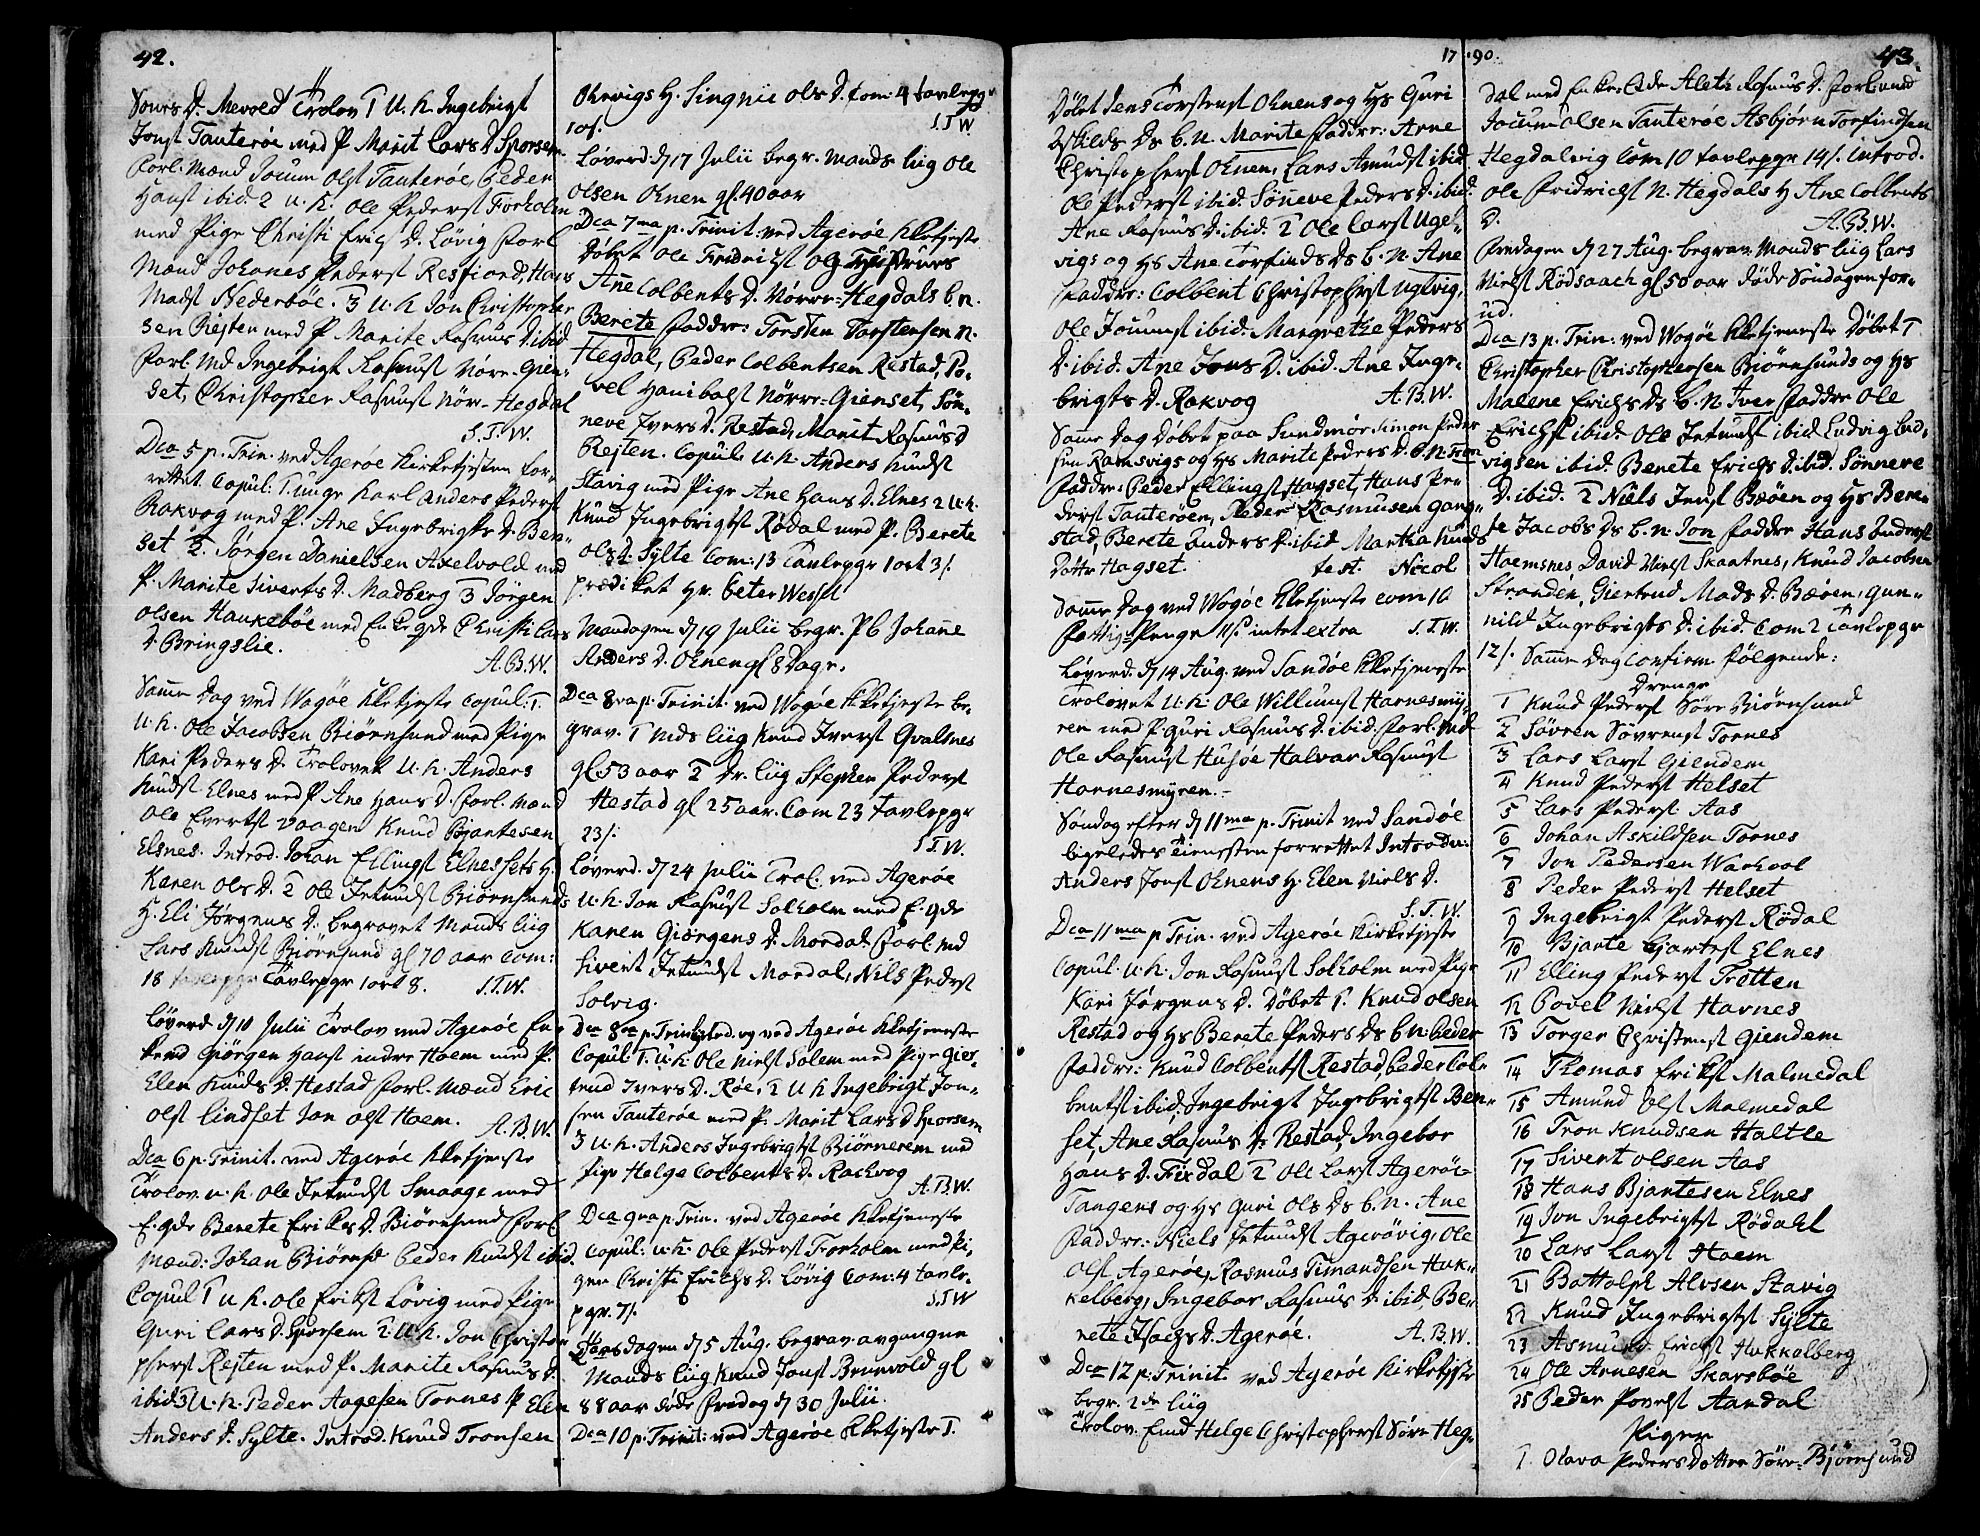 42.
Sours D. Mevold Trolov 1 U. k. Ingebrigt
Jonst Tanterøe med P Marit Lars D Sporsem
Forl. Mænd Jocum Olst Tanterøe, Peder
Hanst ibid. 2 u. k. Ole Pederst Forholm
med Pige Christi Erichs D. Løvig Forl
Mænd Johanes Pederst Resfiord, Hans
Madst Nederbøe. 3 U. k Jon Christopher
sen Rejten med P Marite Rasmus D. ibid
Forl. Md. Ingebrigt Rasmust Nørr-Gien-
set, Christopher Rasmust Nørr-Hegdal
S. T. W.
Dca 5 p. Trin. ved Agerøe Kirketjesten for-
rettet Copul: 1. unge Karl Anders Pederst
Rakvog med P. Ane Ingebrigts D. Ben-
set 2. Jørgen Danielsen Axelvold med
P. Marite Siverts D. Madberg 3 Jørgen
Olsen Haukebøe med Enke gde Christi Lars
D Bringslie.
A. B. W.
Samme Dag ved Wagøe Kketjeste Copul: 1.
U. k. Ole Jacobsen Biørnsund med Pige
Kari Peders D. Trolovet U. k. Anders
Knudst Elnes med P Ane Hans D. Forl. Mænd
Ole Evertst Vaagen Knud Bjantesen
Elsnes. Introd. Johan Ellingst Elnessets H.
Karen Ols D. 2 Ole Jetmundst Biørnsunds
H. Eli Jørgens D. begravet Mands liig
Lars Knudst Biørnsund gl 70 aar Com:
18 Tavlepgr 1 ort 8. S. T. W.
Løverd. d 10 Julii Trolov. ved Agerøe En-
kemd Giørgen Hanst indre Hoem med P.
Elen Knuds D. Hestad Forl. Mænd Eric
Olst Lindset Jon Olst Hoem. A. B. W.
Dca 6 p. Trinit. ved Agerøe Kketjeste
Trolov. u. k. Ole Jetmundst Smaage med
E. gde Berete Eriks D. Biørnsund Forl
Mænd: Johan Biørnst Peder Knudst ibid.
Copul 1 u k. Ole Erikst Løvig med Pige
Guri Lars D. Sporsem 2. U. k. Jon Christo-
pherst Rejten med P. Marite Rasmus D.
ibid 3 U. k. Peder Aagesen Tornes P Elen
Anders D. Sylte. Introd. Knud Tronsen
Ohrvigs H. Singnie Ols D. Com: 4 tavlepgr
10 s. S. T W
Løverd. d 17 Julii begr. Mands liig Ole
Olsen Ohnen gl. 40 aar
Dca 7ma p. Trinit: ved Agerøe Kketjeste
Døbet Ole Fridrichst og
Ane Colbents D. Nørre-Hegdals b n.
Berete Faddre: Torsten Torstensen N.
Hegdal, Peder Colbentsen Restad, Po-
vel Hanibalst Nørre-Gienset, Søn-
neve Ivers D. Restad, Marit Rasmus D
Rejten. Copul. u. k. Anders Knudst
Stavig med Pige Ane Hans D. Elnes 2 U. k.
Knud Ingebrigtst Rødal med P. Berete
Ols D Sylte Com: 13 Tavlepgr 1 ort 3 s.
prædiket Hr. Peter Wessel
Mandagen d 19 Julii begr. Pb Johane
Anders D. Ohnen gl 8 Dage.
Dca 8va p. Trinit. ved Wogøe Kketjeste be-
grav. 1 Mds liig Knud Iverst Qvalsnes
gl 53 aar 2 Dr. liig Stephen Pederst
Hestad gl 25 aar. Com 23 tavlepgr
23 s. S T. W.
Løverd. d 24 Julii Trol. ved Agerøe
U. k. Jon Rasmust Solholm med E. gde
Karen Giørgens D. Mordal Forl. Md
Sivert Jetmundst Mordal, Nils Pedrst
Solvig.
Dca 8va p. Trinit. ved Agerøe Kketjeneste
Copul. 1. U. k. Ole Nielst Solem med Pige Gier-
trud Ivers D. Røe, 2 U k Ingebrigt Jon-
sen Tanterøe med P. Marit Lars D Sporsem
3 u. k. Anders Ingebrigtst Biørnerem med
Pige Helge Colbents D. Rachvog
A. B. W.
Dca 9na p. Trin. ved Agerøe Kketjeneste
Copul: u. k. Ole Pederst Forholm med Pi-
gen Christi Erichs D. Løvig Com: 4 tavle-
pgr. 7 s. S. T W
Torsdagen d 5 Aug. begrav. avgangne
Mands liig Knud Jonst Brunvold gl
88 aar døde Fredag d 30 Julii.
Dca 10 p. Trinit: ved Agerøe Kketjeste 1.
17 90
43.
Døbet Jens Torstenst Ohnens og Hs Guri
Eskilds Ds b. n. Marite Faddre: Arne
Christopherst Ohnen, Lars Amundst ibid.
Ole Pederst ibid. Sønneve Peders D. ibid.
Ane Rasmus D. ibid. 2 Ole Larst Ugel-
vigs og Hs Ane Torfinds Ds b. n. Ane
Faddre: Colbent Christopherst Uglvig,
Ole Jocumst ibid: Margrethe Peders
D. ibid. Ane Jons D. ibid. Ane Inge-
brigts D. Rakvog A. B. W.
Samme Dag Døbet paa Sundmør Simon Peder
sen Ramsvigs og Hs Marite Peders D. b. n.
Faddre: Peder Ellingst Hagset, Hans Pe-
derst Tanterøen, Peder Rasmusen Gang-
stad, Berete Anders D. ibid Martha Knuds
Dotter Hagset. test. Nicol
Samme Dag ved Wogøe Kketjeneste Com 10
Fattig Penge 11 s. intet extra S. T. W.
Løverd. d 14 Aug. ved Sandøe Kketjeneste
Trolovet u. k. Ole Willumst Harnesmy-
ren med P. Guri Rasmus D. ibid. Forl. Md
Ole Rasmust Husøe Halvar Rasmust
Harnesmyren.-
Søndag efter d 11ma p. Trinit ved Sandøe
ligeledes Tienesten forrettet Introder:
Anders Jonst Ohnens H. Elen Niels D.
S. T. W.
Dca 11ma p Trin. ved Agerøe Kirketjeste
Copul. u. k. Jon Rasmust Solholm med Pige
Kari Jørgens D. Døbet 1. Knud Olsen
Restad og Hs Berete Peders Ds b n. Peder
Faddre: Knud Colbentst Restad, Peder Col-
bentst ibid. Ingebrigt Ingebrigtst Ben-
set, Ane Rasmus D. Restad, Ingebor
Hans D. Fixdal 2 Ole Larst Agerøe-
Tangens og Hs Guri Ols Ds b. n. Ane
Faddre: Niels Jetmundst Agerøvig, Ole
Olst Agerøe, Rasmus Timandsen Huk-
kelberg, Ingebor Rasmus D. ibid, Be-
rete Isachs D. Agerøe. A. B. W.
Dca 12 p. Trinit. ved Agerøe Kirketjste
begr. 2de liig
Trolov. Emd Helge Christopherst Søre Heg-
dal med Enken Ede Aleth Rasmus D. Forl. md
Jocum Olsen Tanterøe Asbjørn Torfindsen
Hegdalvig Com 10 tavlepgr 14 s. introd.
Ole Fridrichst N. Hegdals H Ane Colbents
D. A. B. W.
Fredagen d 27 Aug. begrav. Mands liig Lars
Nielst Rødsaach gl 50 aar døde Søndagen for-
ud.
Dca 13 p. Trin. ved Wogøe Kketjeneste Døbet 1
Christopher Christophersen Biørnsunds og Hs
Malene Erichs Ds b. n. Iver Faddre Ole
Erichst ibid. Ole Jetmundst ibid Ludvig Lud-
vigsen ibid. Berete Erichs D. ibid. Sønneve
D. ibid. 2 Niels Jenst Bæøen og Hs Bere-
te Jacobs Ds b. n. Jon Faddre Hans Anderst
Hoemsnes David Nielst Skaatnes, Knud Jacobsen
Stranden, Giertrud Mads D. Bæøen, Gun-
nild Ingebrigts D. ibid. Com 2 Tavlepgr
12 s. Samme Dag Confirm følgende:
Drenge
1 Knud Pederst Søre Biørnsund
2 Søvren Søvrenst Tornes
3 Lars Larst Giendem
4 Knud Pederst Helset
5 Lars Pederst Aas
6 Johan Askildsen Tornes
7 Jon Pedersen Warhoel
8 Peder Pederst Helset
9 Ingebrigt Pederst Rødal
10 Bjante Bjantst Elnes
11 Elling Pederst Tretten
12 Povel Nielst Harnes
13 Torger Christenst Giendem
14 Thomas Erikst Malmedal
15 Amund Olst Malmedal
16 Tron Knudsen Haltle
17 Sivert Olsen Aas
18 Hans Bjantesen Elnes
19 Jon Ingebrigtst Rødahl
20 Lars Larst Hoem
21 Bottolph Alvsen Stavig
22 Knud Ingebrigtst Sylte
23 Asmund Erichst Hukkalberg
24 Ole Arnesen Skarsbøe
25 Peder Povelst Aandal
Piger
1. Olava Peders Dotter Søre-Bjørnsund